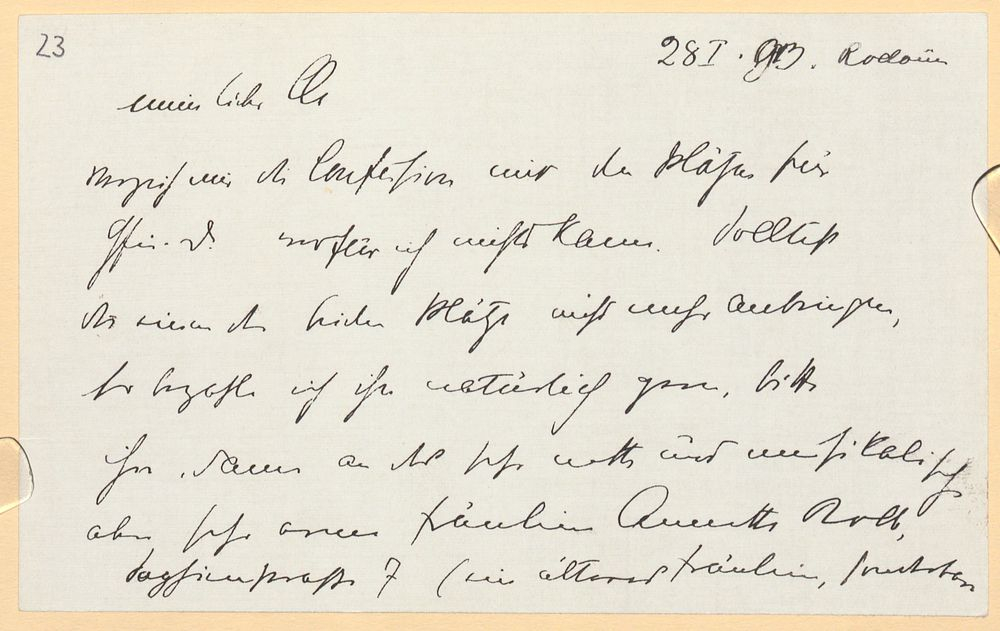 23
28 I. 913. Rodaun
mein lieber
verzeih mir die Confusion mit den Plätzen für
wofür ich nichts kann. Solltest
du einen der beiden Plätze nicht mehr anbringen,
so bezahle ich ihn natürlich gern, bitte
ihn, dann an das sehr nette und musikalische
aber sehr arme Fräulein Annette Kolb,
7 (ein älteres Fräulein,